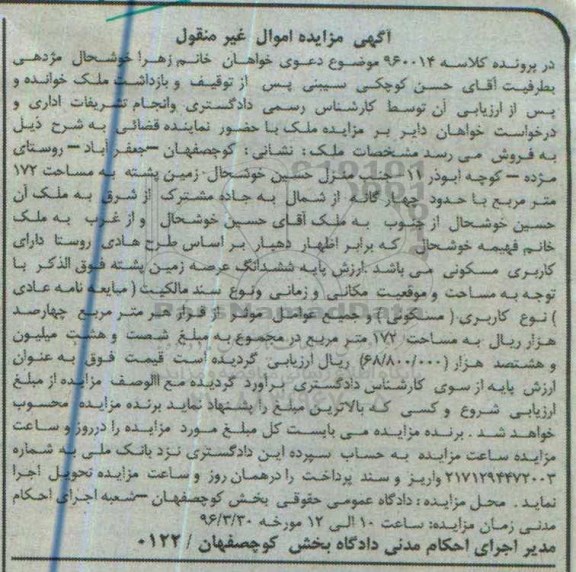 آگهی مزایده اموال غیر منقول
در پرونده کلاسه ۹۶۰۰۱۴ موضوع دعوی خواهان خانم زهرا خوشحال مژدهی
بطرفیت آقای حسن کوچکی سیبنی پس از توقیف و بازداشت ملک خوانده و
پس از ارزیابی آن توسط کارشناس رسمی دادگستری وانجام تشریفات اداری و
درخواست خواهان دایر بر مزایده ملک با حضور نماینده قضائی به شرح ذیل
به فروش می رسد مشخصات ملک: نشانی: کوچصفهان –جعفر آباد – روستای
مژده – کوچه ابوذر ۱۱- جنب منزل حسین خوشحال- زمین پشته به مساحت ۱۷۲
متر مربع با حدود چهار گانه از شمال به جاده مشترک از شرق به ملک آن
حسین خوشحال از جنوب به ملک آقای حسین خوشحال و از غرب به ملک
خانم فهیمه خوشحال که برابر اظهار دهیار بر اساس طرح هادی روستا دارای
کاربری مسکونی می باشد .ارزش پایه ششدانگ عرصه زمین پشته فوق الذکر با
توجه به مساحت و موقعیت مکانی و زمانی ونوع سند مالکیت ( مبایعه نامه عادی
) نوع کاربری ( مسکونی ) و جمیع عوامل موثر از قرار هر متر مربع چهارصد
هزار ریال به مساحت ۱۷۲ متر مربع در مجموع به مبلغ شصت و هشت میلیون
و هشتصد هزار (۶۸/۸۰۰/۰۰۰) ریال ارزیابی گردیده است قیمت فوق به عنوان
ارزش پایه از سوی کارشناس دادگستری برآورد گردیده مع الوصف مزایده از مبلغ
ارزیابی شروع و کسی که بالاترین مبلغ را پیشنهاد نماید برنده مزایده محسوب
خواهد شد . برنده مزایده می بایست کل مبلغ مورد مزایده را درروز و ساعت
مزایده ساعت مزایده به حساب سپرده این دادگستری نزد بانک ملی به شماره
۲۱۷۱۲۹۴۴۷۲۰۰۳ واریز و سند پرداخت را درهمان روز و ساعت مزایده تحویل اجرا
نماید . محل مزایده : دادگاه عمومی حقوقی بخش کوچصفهان –شعبه اجرای احکام
مدنی زمان مزایده: ساعت ۱۰ الی ۱۲ مورخه ۹۶/۳/۳۰
مدیر اجرای احکام مدنی دادگاه بخش کوچصفهان / ۰۱۲۲